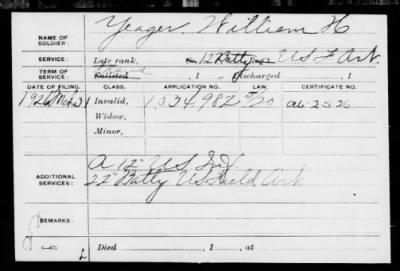 NAME OF SOLDIER: Yeager, William H
SERVICE: Late rank, Co. 12 Batty Reg't U S F Art.
TERM OF SERVICE: Enlisted , 1 Discharged , 1
DATE OF FILING. CLASS. APPLICATION NO. LAW. CERTIFICATE NO.
1926 Mch 31 Invalid, 1,534,982 20 a6-25-26
Widow,
Minor,
ADDITIONAL SERVICES: A 12" U S Inf
22" Batty U S Field Art.
REMARKS:
Died , 1 , at